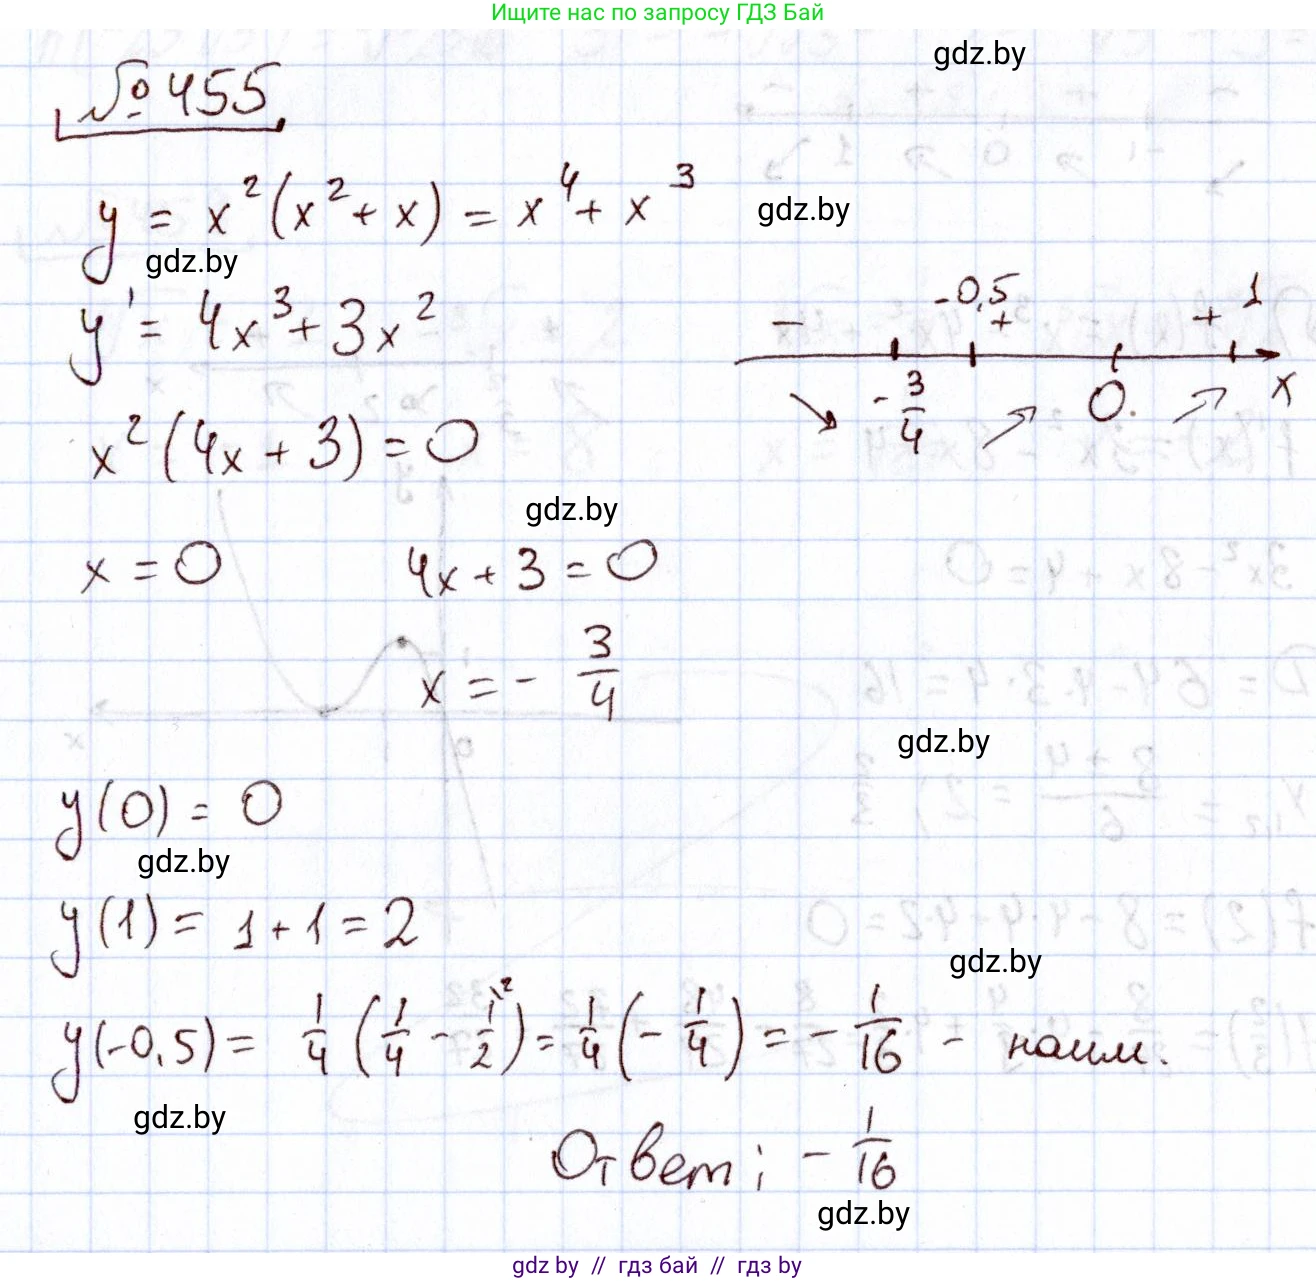 Ищите нас по запросу ГДЗ Бай
gdz.by
№ 455
y = x²(x² + x) = x⁴ + x³
gdz.by
gdz.by
y' = 4x³ + 3x²
-0,5 1
- + +
-3/4 0 x
x²(4x + 3) = 0
gdz.by
x = 0 4x + 3 = 0
x = - 3/4
gdz.by
y(0) = 0
gdz.by
y(1) = 1 + 1 = 2
gdz.by
y(-0,5) = 1/4 (1/4 - 1/2\²) = 1/4 (- 1/4) = - 1/16 - наим.
gdz.by
Ответ: - 1/16
gdz.by
gdz by // гдз бай // гдз by